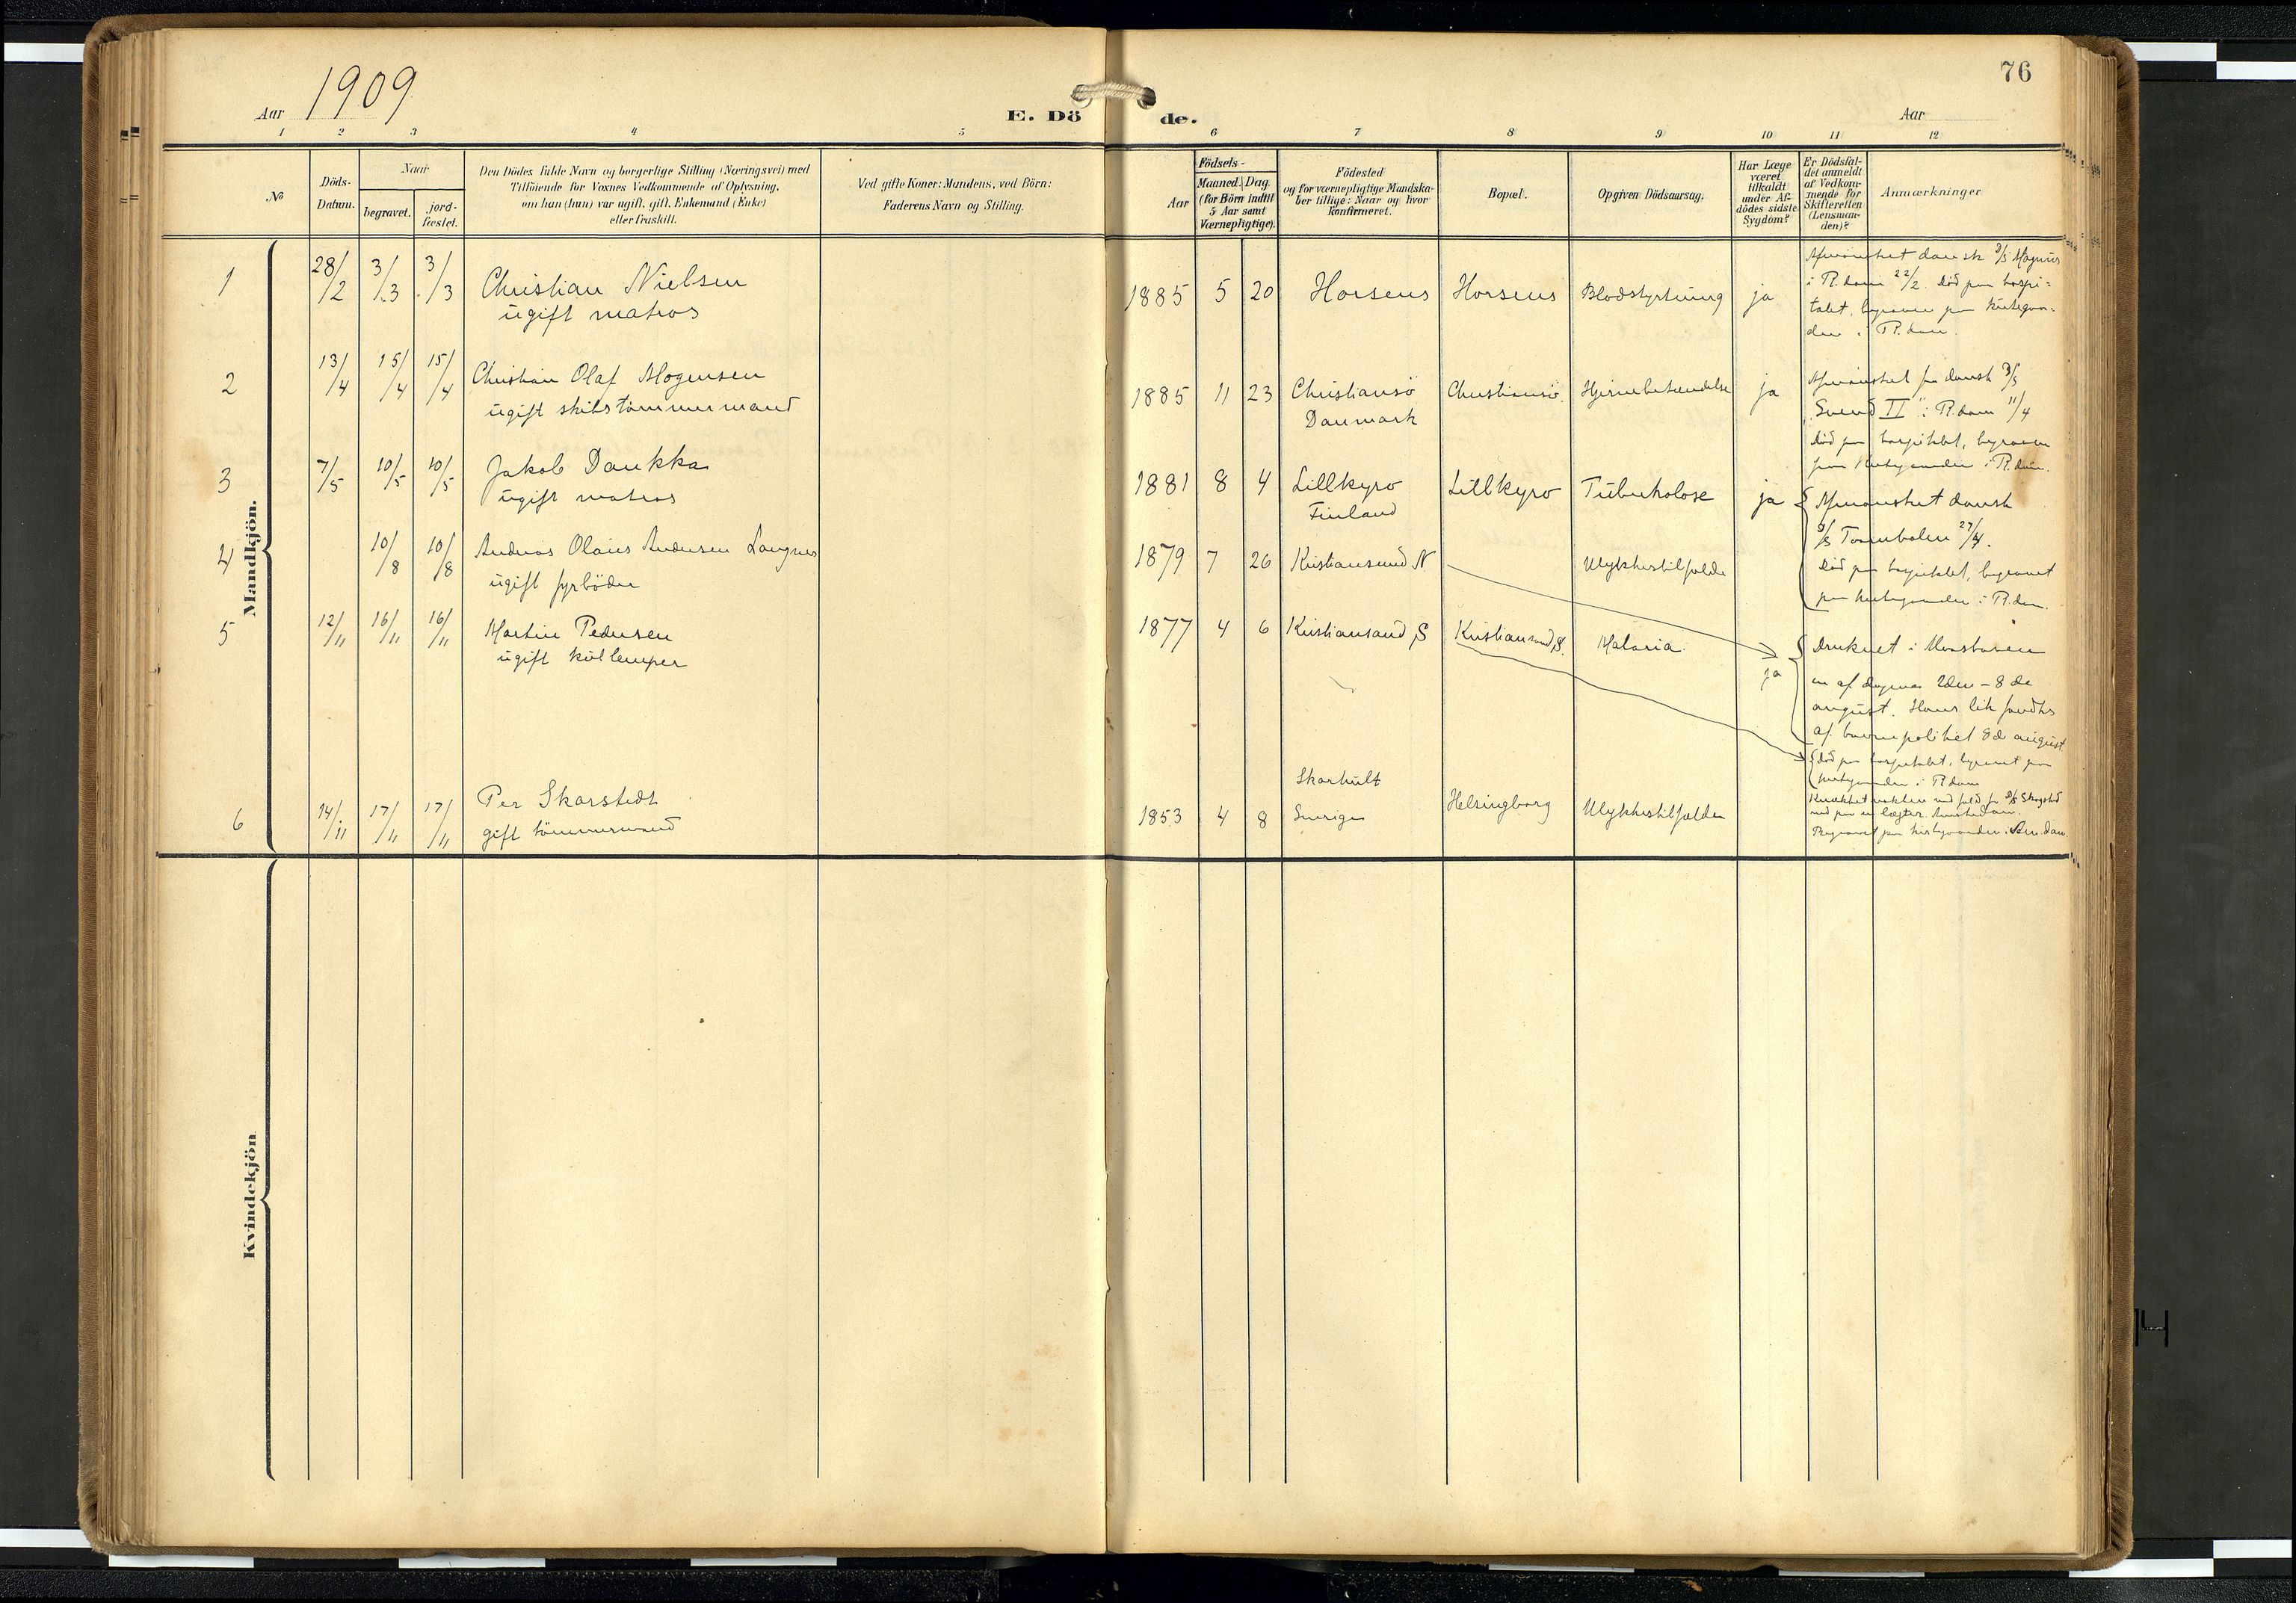 76
Aar 1909
E. Döde.
Aar
1 2 3 4 5 6 7 8 9 10 11 12
No
Döds-Datum.
Naar
begravet.
jord-fæstet.
Den Dödes fulde Navn og borgerlige Stilling (Næringsvei) med
Tilföiende for Voxnes Vedkommende af Oplysning,
om han (hun) var ugift, gift, Enkemand (Enke)
eller fraskilt.
Ved gifte Koner: Mandens, ved Börn:
Faderens Navn og Stilling.
Födsels-
Aar
Maaned. Dag.
(for Börn indtil
5 Aar samt
Værnepligtige).
Födested
og for værnepligtige Mandska-
ber tillige: Naar og hvor
konfirmeret.
Bopæl.
Opgiven Dödsaarsag.
Har Læge
været
tilkaldt
under Af-
dödes sidste
Sygdom?
Er Dödsfal-
det anmeldt
af Vedkom-
mende for
Skifteretten
(Lensman-
den)?
Anmærkninger
Mandkjön.
1 28/2 3/3 3/3 Christian Nielsen 1885 5 20 Horsens Horsens Blodstyrtning ja
ugift matros
Afmönstret dansk D/S Magnus
i R.dam 22/2. död paa hospi-
talet, begraven paa kirkegaar-
den i R.dam.
2 13/4 15/4 15/4 Christian Olaf Mogensen 1885 11 23 Christiansö Christiansö Hjernebetændelse ja
ugift skibstömmermand Danmark
Afmönstret fra dansk D/S
"Svend II" i R.dam 11/4
död paa hospitalet, begraven
paa kirkegaarden i R.dam.
3 7/5 10/5 10/5 Jakob Daukka 1881 8 4 Lillkyro Lillkyro Tuberkolose ja
ugift matros Finland
Afmönstret dansk
D/S 27/4.
död paa hospitalet, begravet
paa kirkegaarden i R.dam.
4 10/8 10/8 Andreas Olaus Andersen Langnes 1879 7 26 Kristiansund N Ulykkestilfælde
ugift fyrböder
Druknet i Maashaven
en af dagene 2den - 8de
august. Hans lik fandtes
af havnepolitiet 8de august
5 12/11 16/11 16/11 Martin Pedersen 1877 4 6 Kristiansand S Kristiansand S. Malaria ja
ugift kullemper
död paa hospitalet, begravet paa
kirkegaarden i R.dam
6 14/11 17/11 17/11 Per Skarstedt 1853 4 8 Skarhult Helsingborg Ulykkestilfælde
gift tömmermand Sverige
Knækket nakken ved fald fra D/S
ned paa en lægter. Amsterdam.
Begravet paa kirkegaarden i Am.dam.
Kvindekjön